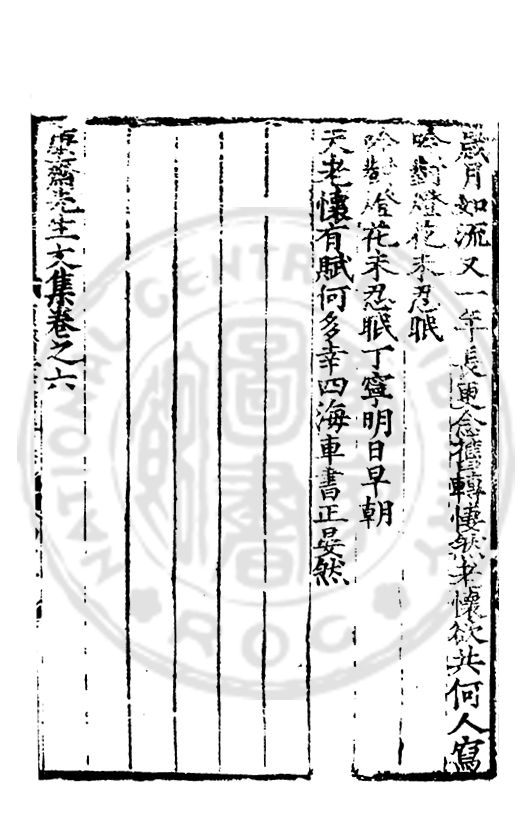 歲月如流又一年長更念舊轉悽然老懷欲共何人寫
吟對燈花未忍眠
吟對燈花未忍眠丁寧明日早朝
天老懷有賦何多幸四海車書正晏然
庚齋先生文集卷之六
NATIONAL CENTRAL LIBRARY
R.O.C